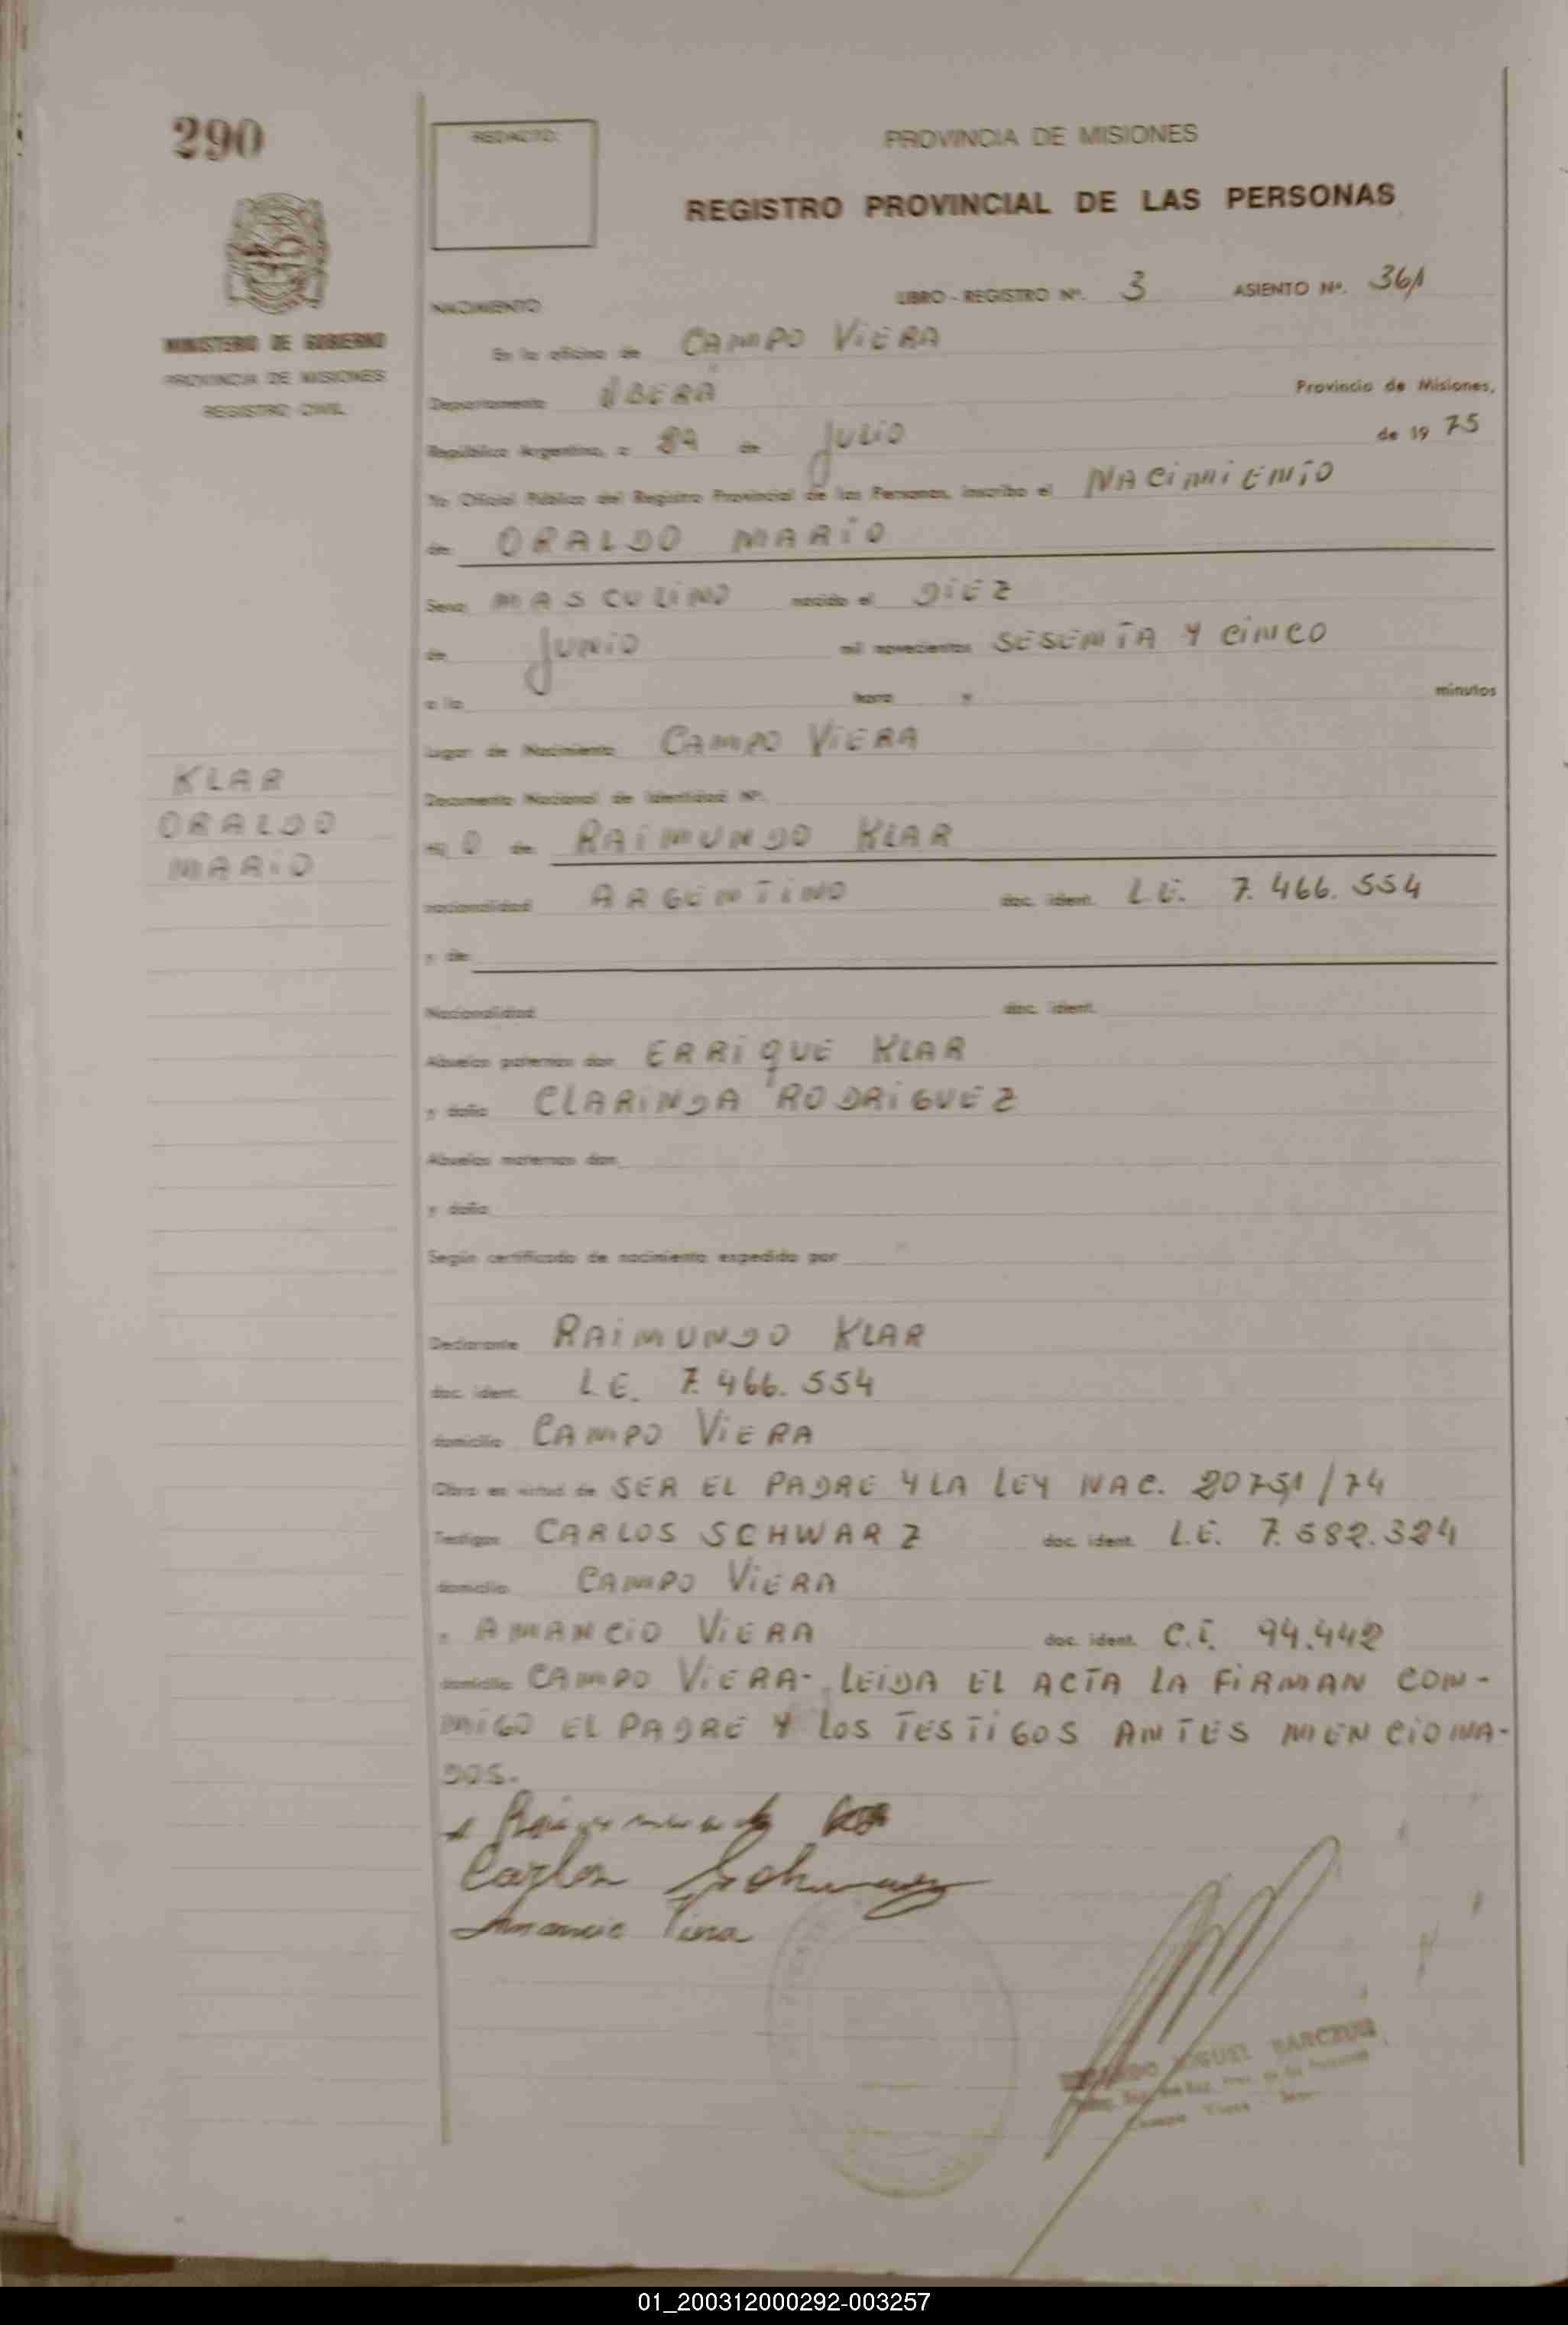 290
REDACTO:
PROVINCIA DE MISIONES
REGISTRO PROVINCIAL DE LAS PERSONAS
MINISTERIO DE GOBIERNO
PROVINCIA DE MISIONES
REGISTRO CIVIL
NACIMIENTO
LIBRO - REGISTRO Nº. 3 ASIENTO Nº. 361
En la oficina de CAMPO VIERA
Departamento OBERA Provincia de Misiones,
República Argentina, a de JULIO de 19 75
Yo Oficial Público del Registro Provincial de las Personas, inscribo el NACIMIENTO
de ORALDO MARIO
Sexo MASCULINO nacido el DIEZ
de JUNIO mil novecientos SESENTA Y CINCO
a la hora y minutos
Lugar de Nacimiento CAMPO VIERA
Documento Nacional de Identidad Nº.
KLAR
ORALDO
MARIO
Hij O de RAIMUNDO KLAR
nacionalidad ARGENTINO doc. ident. L.E. 7.466.554
y de
Nacionalidad doc. ident.
Abuelos paternos don ERRIQUE KLAR
y doña CLARINDA RODRIGUEZ
Abuelos maternos don
y doña
Según certificado de nacimiento expedido por
Declarante RAIMUNDO KLAR
doc. ident. L.E. 7.466.554
domicilio CAMPO VIERA
Obra en virtud de SER EL PADRE Y LA LEY NAC. 20751/74
Testigos CARLOS SCHWARZ doc. ident. L.E. 7.582.324
domicilio CAMPO VIERA
y AMANCIO VIERA doc. ident. C.I. 94.442
domicilio CAMPO VIERA- LEIDA EL ACTA LA FIRMAN CON-
MIGO EL PADRE Y LOS TESTIGOS ANTES MENCIONA-
DOS.
Raimundo
Carlos Schwarz
Amancio Viera
MIGUEL
Campo Viera
01_200312000292-003257